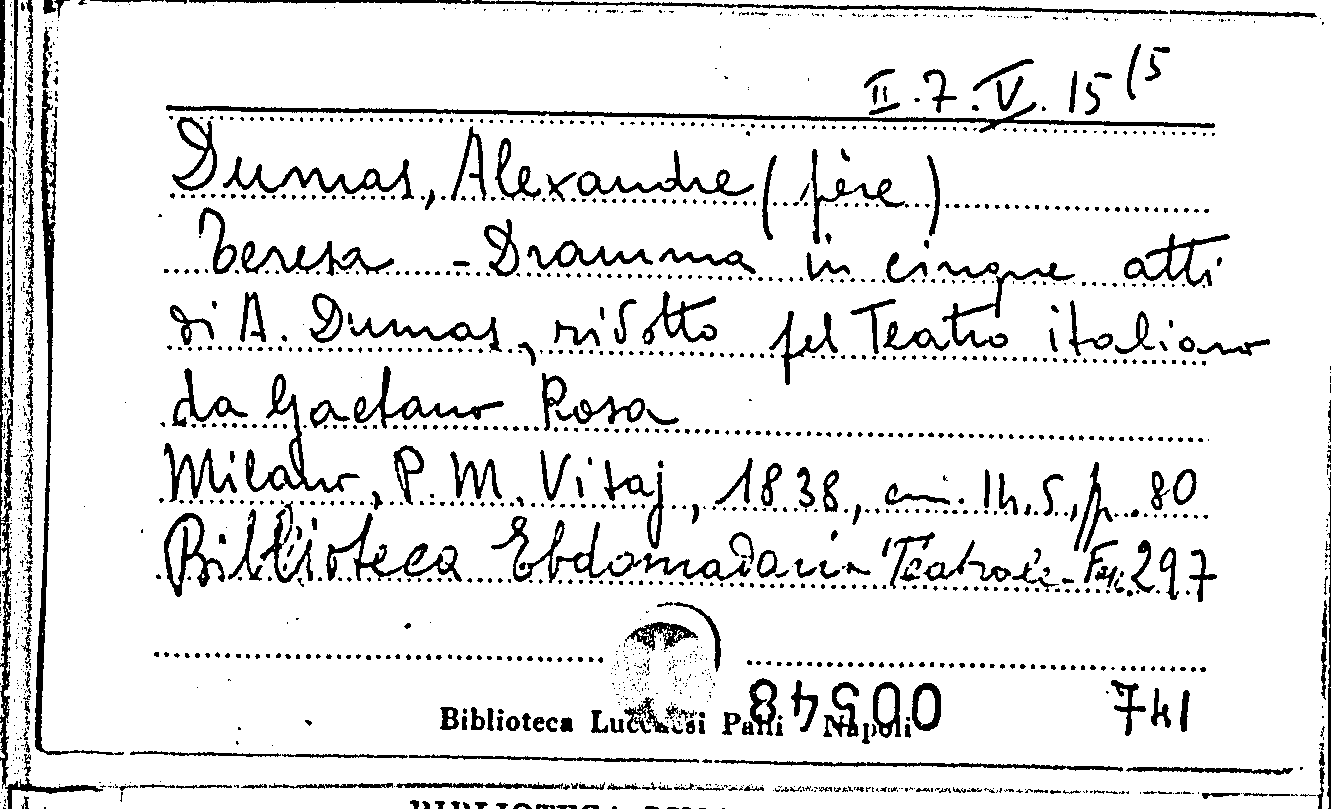 II.7.V.15(5
Dumas, Alexandre (père)
Teresa - Dramma in cinque atti
di A. Dumas, ridotto pel Teatro italiano
da Gaetano Rosa
Milano, P. M. Visaj, 1838, cm. 14,5, p. 80
Biblioteca Ebdomadaria Teatrale - Fasc. 297
005548 741
Biblioteca Lucchesi Palli Napoli